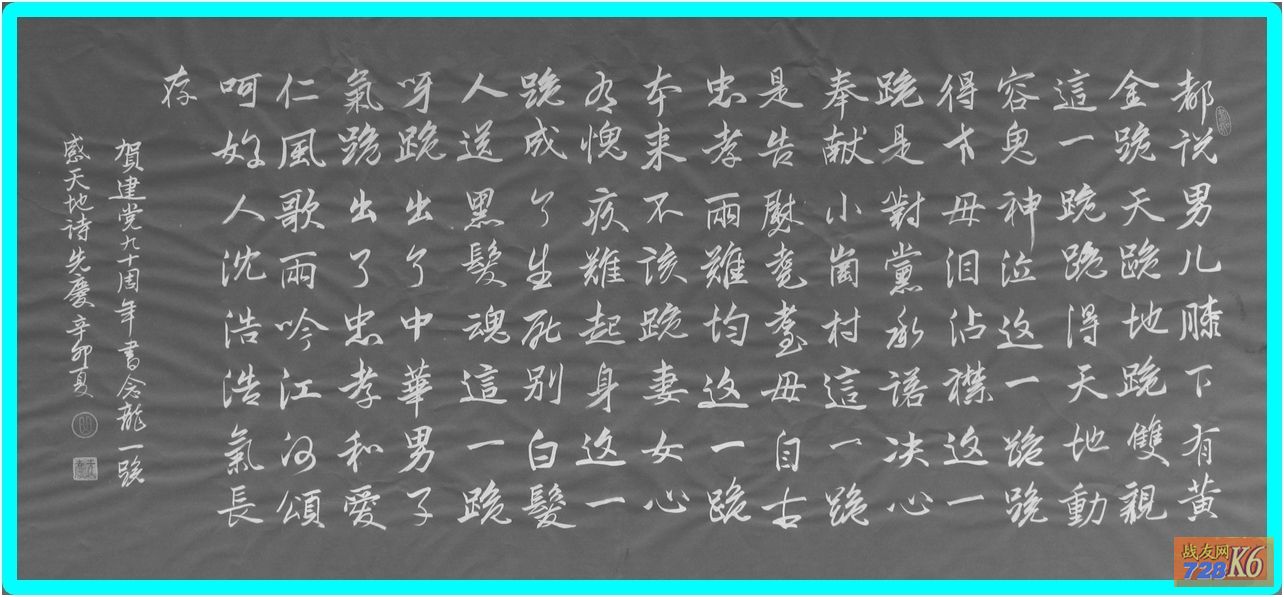 都说男儿膝下有黄
金跪天跪地跪雙親
這一跪跪得天地動
容鬼神泣这一跪跪
得才母泪沾襟这一
跪是對黨承諾决心
奉献小崗村這一跪
是告慰堯臺母自古
忠孝兩難均这一跪
本来不该跪妻女心
有愧疚難起身这一
跪成了生死别白髮
人送黑髮魂這一跪
呀跪出了中華男子
氣跪出了忠孝和愛
仁風歌雨吟江河頌
呵好人沈浩浩氣長
存
賀建党九十周年書念龍一跪
感天地诗先慶辛卯夏
战友网
728K6